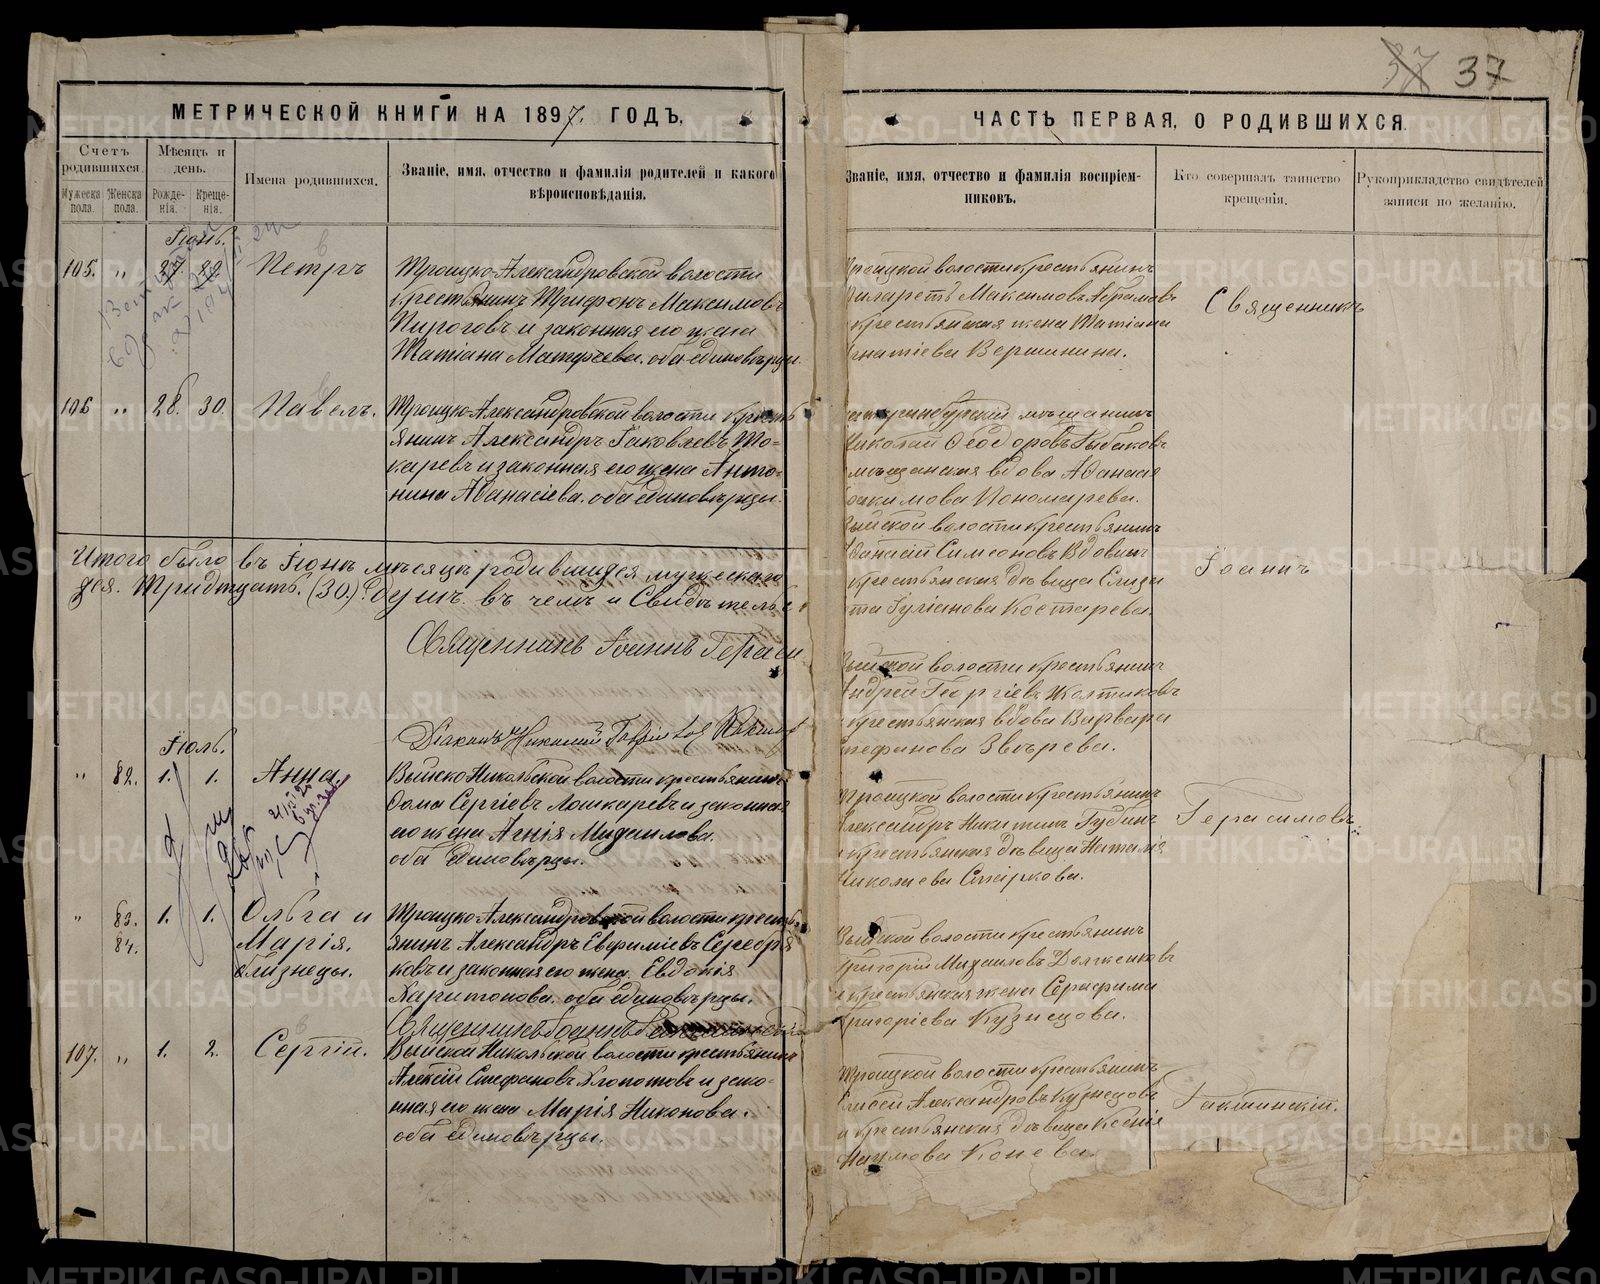 37 37
МЕТРИЧЕСКОЙ КНИГИ НА 1897. ГОДЪ,
Счетъ родившихся.
Мужеска пола.
Женска пола.
Мѣсяцъ и день.
Рожде-нія.
Креще-нія.
Имена родившихся.
Званіе, имя, отчество и фамилія родителей и какого
вѣроисповѣданія.
Іюнь.
105. „ 27. 29. Петръ
Троицко-Александровской волости
крестьянинъ Трифонъ Максимовъ
Пироговъ и законная его жена
Татіана Матѳеева. оба единовѣрцы.
106 „ 28. 30. Павелъ.
Троицко-Александровской волости кресть
янинъ Александръ Іаковлевъ То-
каревъ и законная его жена Анто-
нина Аѳанасіева. оба единовѣрцы.
Итого было въ Іюнѣ мѣсяцѣ родившихся мужескаго
пола. Тридцать. (30.) душъ. въ чемъ и Свидѣтельс
Священникъ Іоаннъ Гераси
Діаконъ Николай
Іюль.
„ 82. 1. 1. Анна.
Выйско Никольской волости крестьянинъ
Ѳома Сергіевъ Лошкаревъ и законная
его жена Агнія Михаилова.
оба Единовѣрцы.
„ 83. 84. 1. 1. Ольга и
Марія.
близнецы.
Троицко-Александровской волости кресть
янинъ Александръ Евфиміевъ
ковъ и законная его жена Евдокія
Харитонова. оба единовѣрцы.
Священникъ Іоаннъ
107. „ 1. 2. Сергій.
Выйской Никольской волости крестьянинъ
Алексій Стефановъ Хлопотовъ и зако-
нная его жена Марія Никонова.
оба единовѣрцы.
ЧАСТЬ ПЕРВАЯ, О РОДИВШИХСЯ.
Званіе, имя, отчество и фамилія воспріем-
никовъ.
Кто совершалъ таинство
крещенія.
Рукоприкладство свидѣтелей
записи по желанію.
роицкой волости крестьянинъ
иларетъ Максимовъ Абрамовъ
крестьянская жена Татіана
гнатіева Вершинина.
катеринбургскій мѣщанинъ
Николай Ѳеодоровъ Рыбаковъ
мѣщанская вдова Аѳанасія
Іоакимова Пономарева.
Выйской волости крестьянинъ
Аѳанасій Симеоновъ Вдовинъ
крестьянская дѣвица Елиза
та Іуліанова Костарева.
Выйской волости крестьянинъ
Андрей Георгіевъ Желтиковъ
крестьянская вдова Варвара
тефанова Звѣрева.
Троицкой волости крестьянинъ
Александръ Никитинъ Губинъ
и крестьянская дѣвица Наталія
Николаева Старкова.
Выйской волости крестьянинъ
Григорій Михаиловъ Долженковъ
и крестьянская жена Серафима
Григоріева Кузнецова.
Троицкой волости крестьянинъ
Елисей Александровъ Кузнецовъ
и крестьянская дѣвица Ксенія
Наумова Конева.
Священникъ
Іоаннъ
Герасимовъ.
METRIKI.GASO-URAL.RU